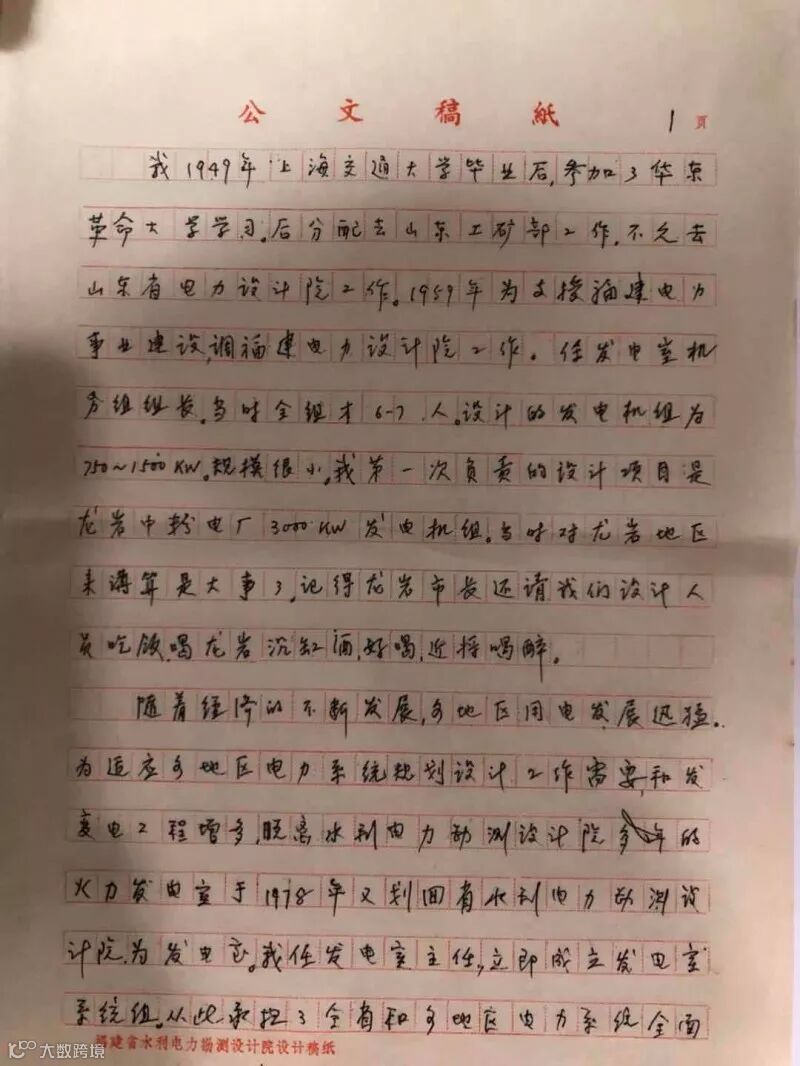 公文稿紙
1 頁
我1949年上海交通大学毕业后,参加了华东
革命大学学习。后分配去山东工矿部工作,不久去
山东省电力设计院工作。1959年为支援福建电力
事业建设,调福建电力设计院工作。任发电室机
务组组长。当时全组才6-7人。设计的发电机组为
750~1500KW。规模很小。我第一次负责的设计项目是
龙岩中粉电厂3000KW发电机组。当时对龙岩地区
来讲算是大事了,记得龙岩市长还请我们设计人
员吃饭,喝龙岩沉缸酒,好喝,近将喝醉。
随着经济的不断发展,各地区用电发展迅猛。
为适应各地区电力系统规划设计工作需要,和发
变电工程增多,脱离水利电力勘测设计院多年的
火力发电室于1978年又划回省水利电力勘测设
计院,为发电室。我任发电室主任,立即成立发电室
系统组。从此承担了全省和各地区电力系统全面
福建省水利电力勘测设计院设计稿纸
大数跨境